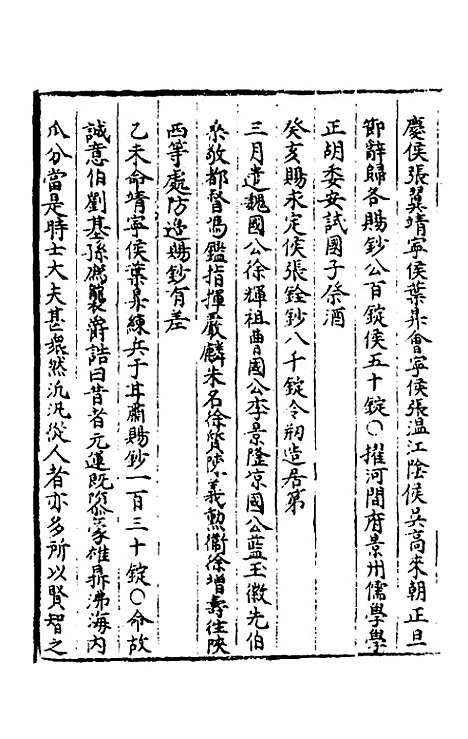 慶侯張翼靖寧侯葉昇會寧侯張温江陰侯吳高來朝正旦
節辭歸各賜鈔公百錠侯五十錠○擢河間府景州儒學學
正胡委安試國子祭酒
癸亥賜永定侯張銓鈔八千錠令剏造居第
三月遣魏國公徐輝祖曹國公李景隆凉國公藍玉徽先伯
桑敬都督馮鑑指揮嚴麟朱名徐質陳義勲衛徐增壽往陝
西等處防邊賜鈔有差
乙未命靖寧侯葉昇練兵于甘肅賜鈔一百三十錠○命故
誠意伯劉基孫廌襲爵誥曰昔者元運既隳豪雄鼎沸海内
瓜分當是時士大夫甚衆然汎汎從人者亦多所以賢智之